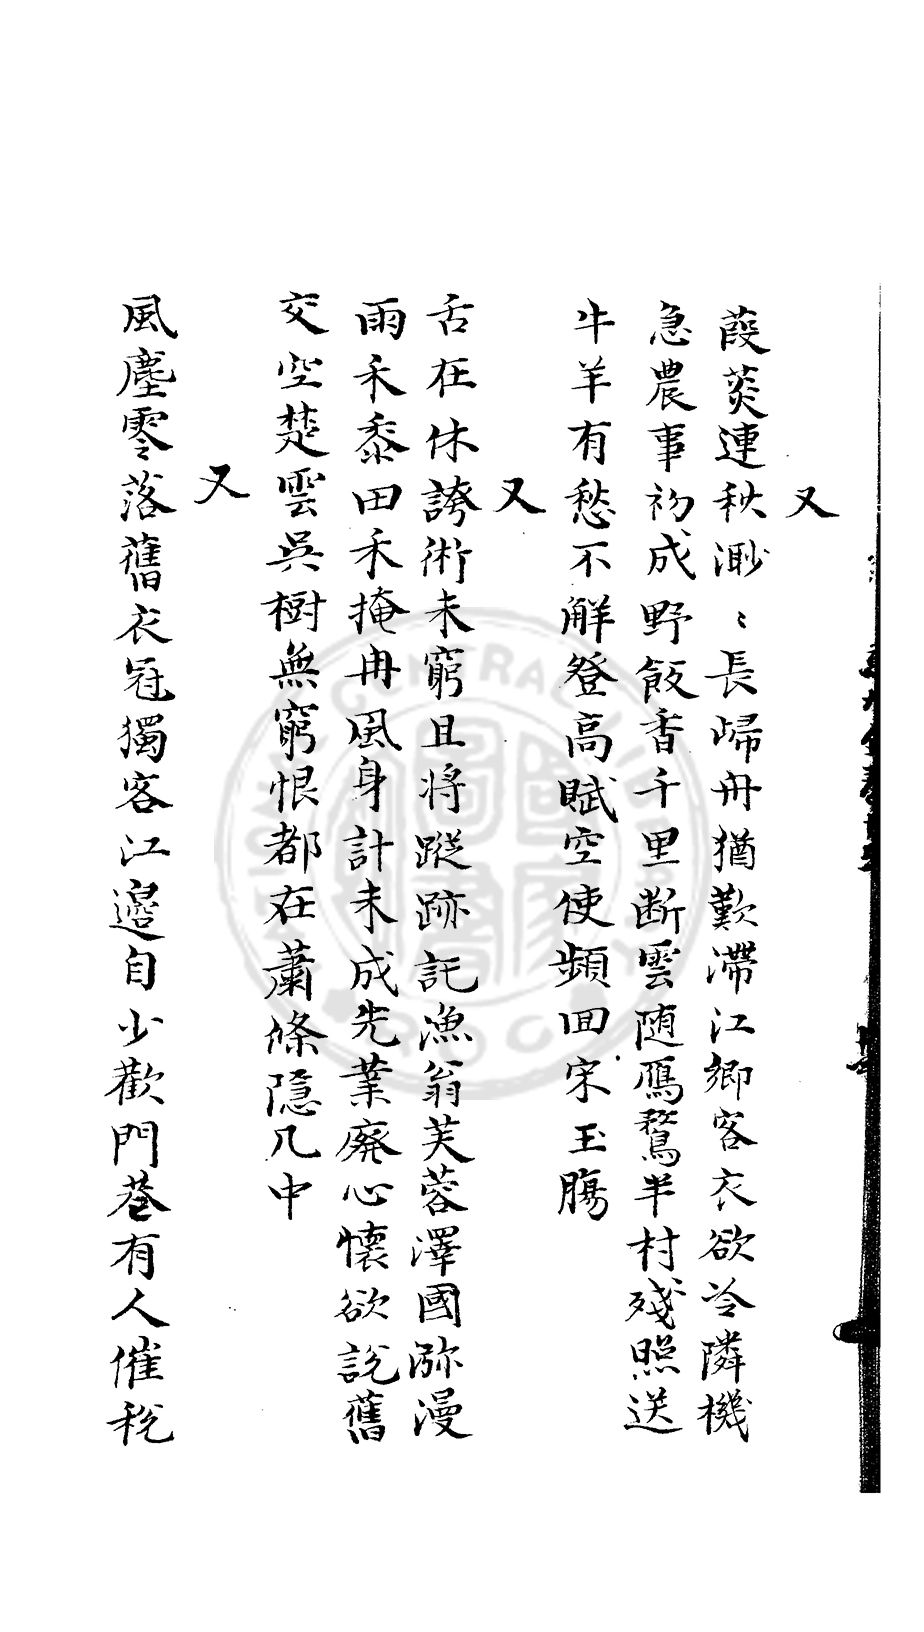 又
葭菼連秋渺〻長歸舟猶歎滯江鄉客衣欲冷隣機
急農事初成野飯香千里斷雲随鴈鶩半村殘照送
牛羊有愁不解登高賦空使頻回宋玉膓
又
舌在休誇術未窮且將蹤跡託漁翁芙蓉澤國瀰漫
雨禾黍田禾掩冉風身計未成先業廢心懷欲說舊
交空楚雲吳樹無窮恨都在蕭條隠几中
又
風塵零落舊衣冠獨客江邊自少歡門巷有人催稅
NATIONAL CENTRAL LIBRARY
R O C
國家圖書